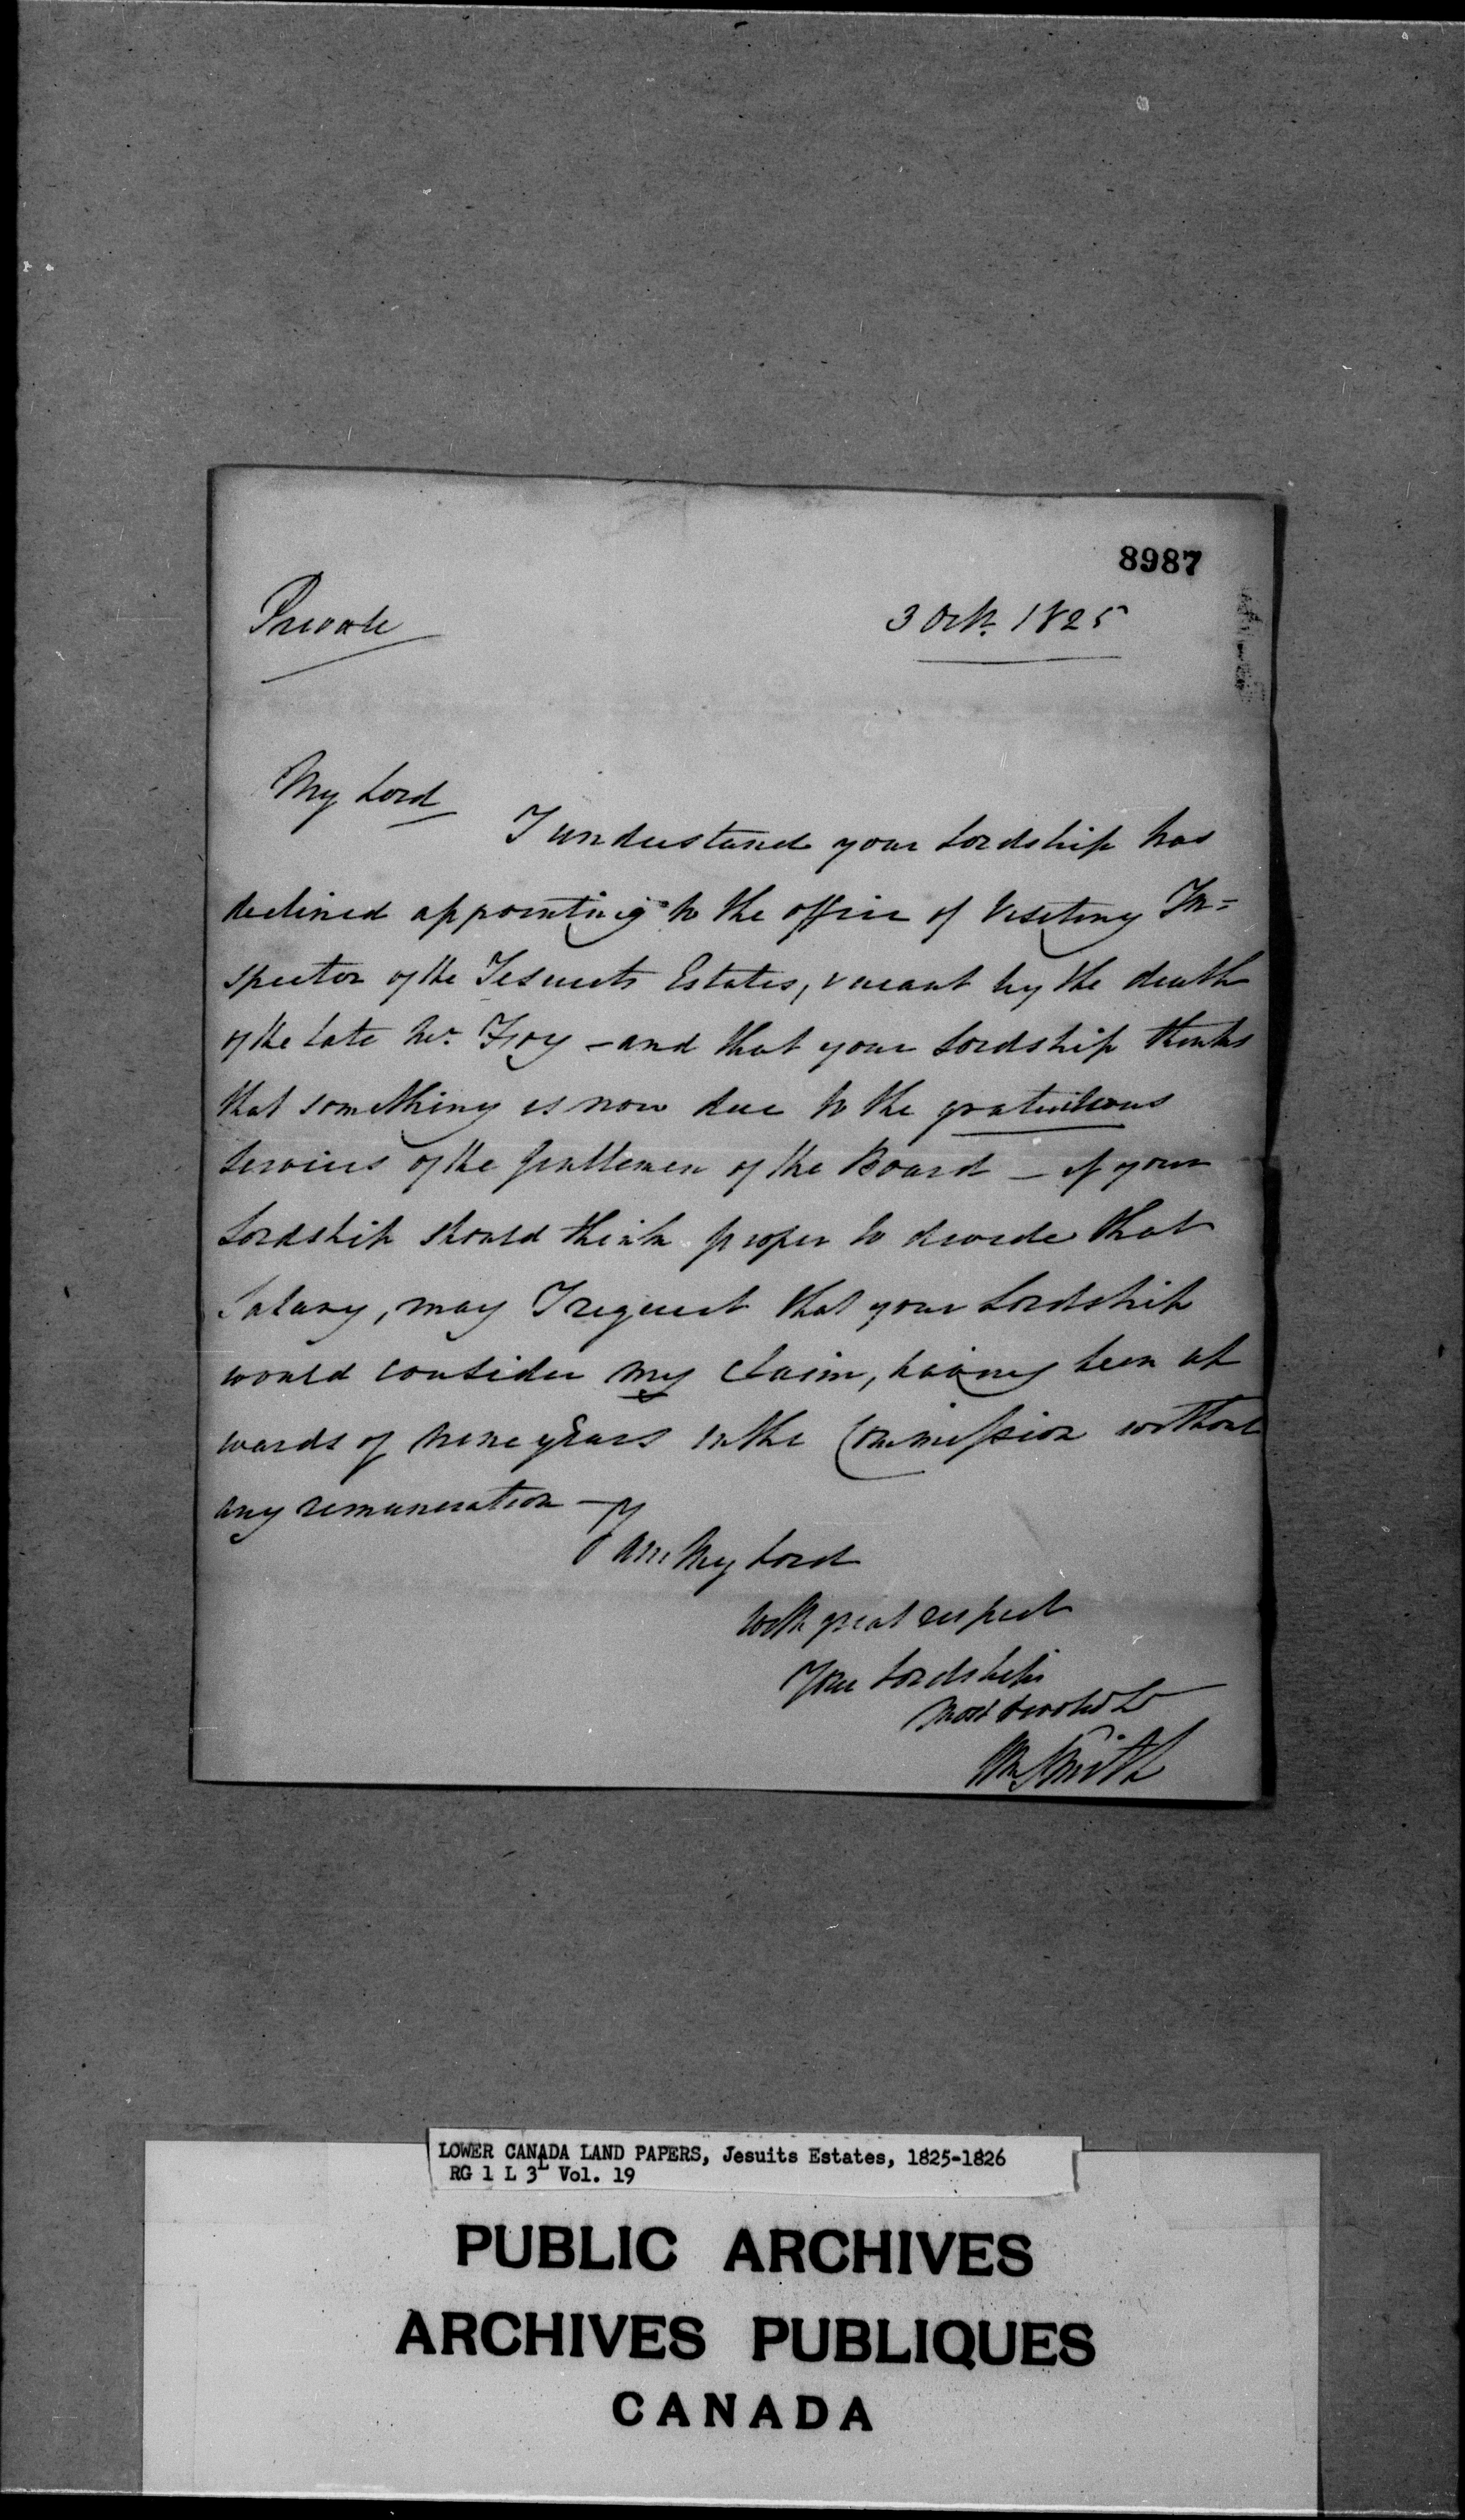 8987
Private
3 Octr. 1825
My Lord
I understand your Lordship has
declined appointing to the office of Visiting In=
spector of the Jesuits Estates, vacant by the death
of the late Mr. Foy - and that your Lordship thinks
that something is now due to the gratuitous
Services of the Gentlemen of the Board - if your
Lordship should think proper to divide that
Salary, may I request that your Lordship
would consider my claim, having been up
wards of nine years in the Commission without
any remuneration -
I am My Lord
With great respect
Your Lordships
Most devoted
Wm Smith
LOWER CANADA LAND PAPERS, Jesuits Estates, 1825-1826
RG 1 L 3L Vol. 19
PUBLIC ARCHIVES
ARCHIVES PUBLIQUES
CANADA